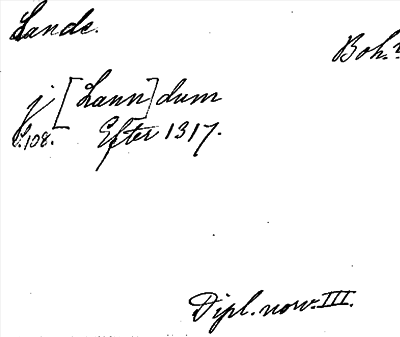 Lande.
Boh.
j [Lann]dum
S. 108. Efter 1317.
Dipl. norv. III.